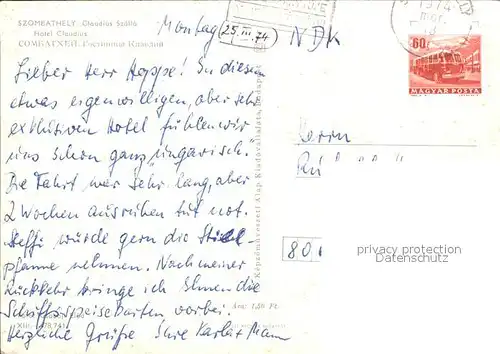 SZOMBATHELY. Claudius Szálló
Hotel Claudius
СОМБАТХЕЙ. Гостиница Клаудий
Montag
25. III. 74
NDK
1974
60f
MAGYAR POSTA
Lieber Herr Hoppe! In diesem
etwas eigenwilligen, aber sehr
exklusiven Hotel fühlen wir
uns schon ganz „ungarisch".
Die Fahrt war sehr lang, aber
2 Wochen ausruhen tut not.
Steffi würde gern die Stiel-
pfanne nehmen. Nach meiner
Rückkehr bringe ich Ihnen die
Schiffsspeisekarten vorbei.
Herzliche Grüße Ihre Karla + Mann
Herrn
80
Képzőművészeti Alap Kiadóvállalata, Budapest
Ára: 1,50 Ft
privacy protection
Datenschutz